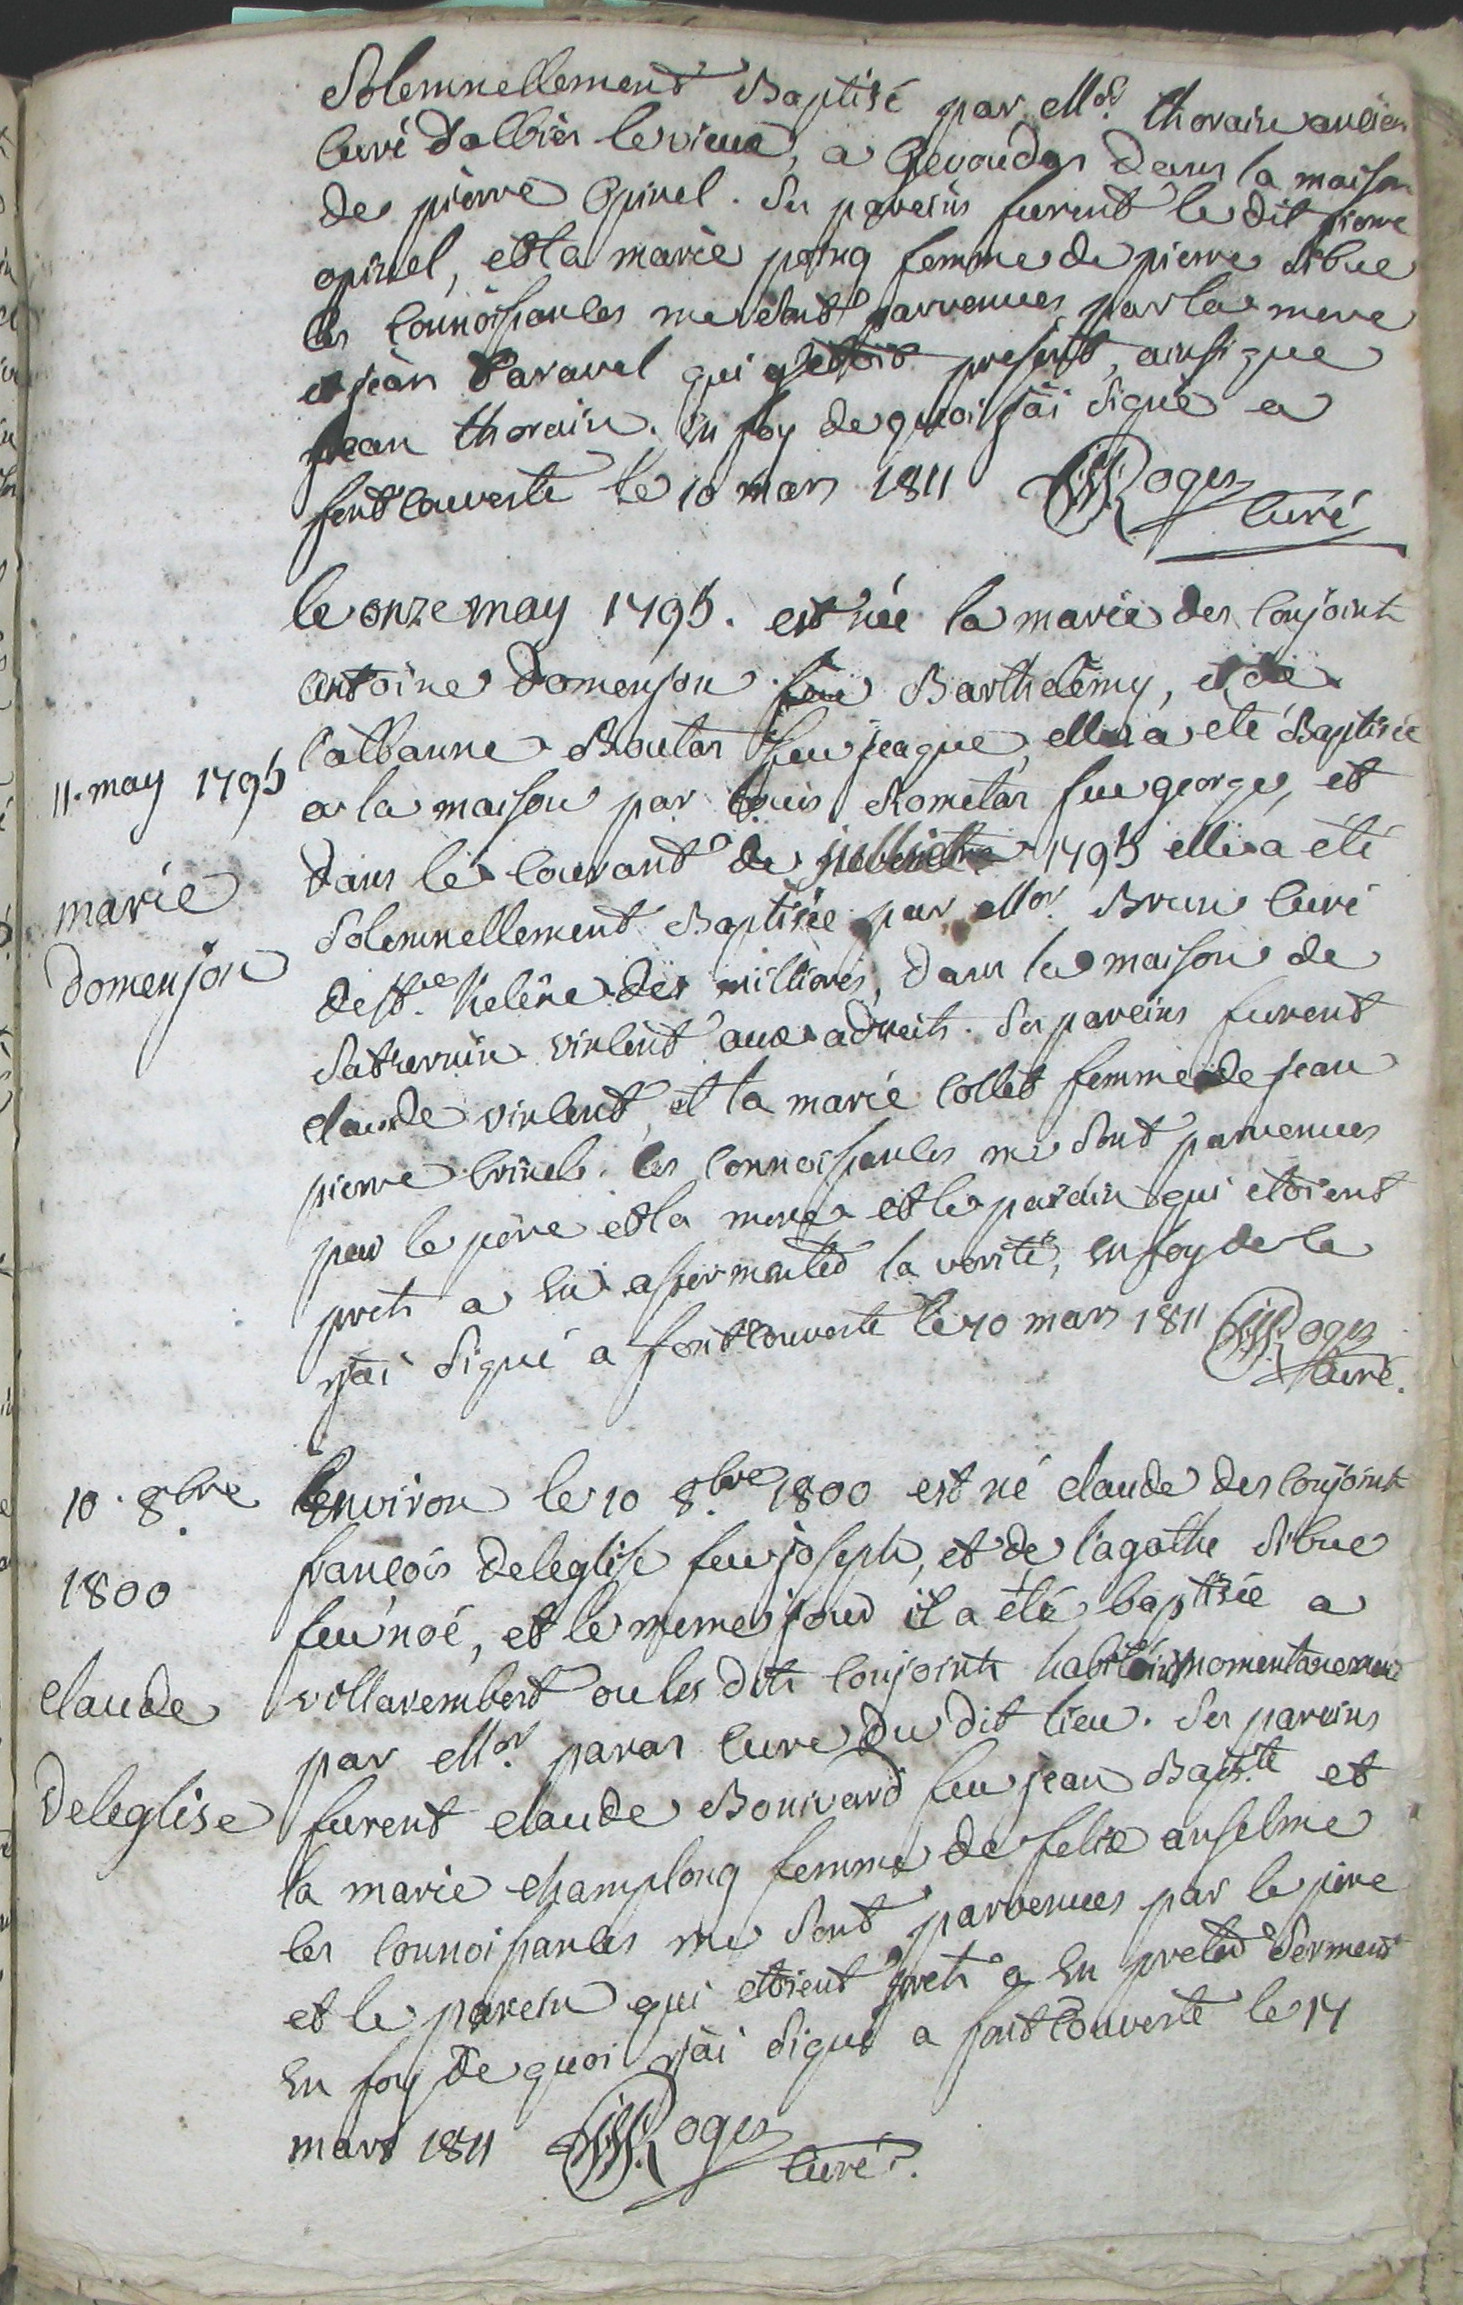 Solemnellement Baptisé par Mr. thorain ancien
curé d'albies le vieux, a Gevoudas dans la maison
de pierre Opinel. Ses pareins furent le dit pierre
opinel, et la marie poing femme de pierre Sibue
les connoissances me sont parvenues par la mere
et jean Taravel qui y etoit present, ainsi que
jean thorain. En foy de quoi j'ai signé a
fontcouverte le 10 mars 1811 Roger
curé
le onze may 1795. est née la marie des conjoints
antoine Domenjon feu Barthelemy, et de
l'albanne Boutas feu jeaque, elle a eté Baptisée
11. may 1795
a la maison par louis Rometas feu george, et
dans le courant de 1795 elle a été
marie
Solemnellement Baptisée par Mr. Brun curé
domenjon
de ste. helène des milliores, dans la maison de
Saturnin vincent aux adreits. Ses pareins furent
claude vincent, et la marie Collet femme de jean
pierre Crinel. les connoissances me sont parvenues
par le père et la mere et le parain qui etoient
prets a en assermenter la verité, en foy de ce
j'ai signé a fontcouverte le 10 mars 1811 Roger
curé.
10. 8bre
Environ le 10 8bre 1800 est né claude des conjoints
françois Deleglise feu joseph, et de l'agathe Sibue
1800
feu noé, et le meme jour il a été baptisée a
villarembert ou les dits conjoints habitoient momentanement
claude
par Mr. paras curé du dit lieu. Ses pareins
Deleglise
furent claude Bonivard feu jean Bapte. et
la marie champlong femme de felix anselme
les connoissances me sont parvenues par le père
et le parein qui etoient prets a en preter serment
En foy de quoi j'ai signé a fontcouverte le 14
mars 1811 Roger
curé.